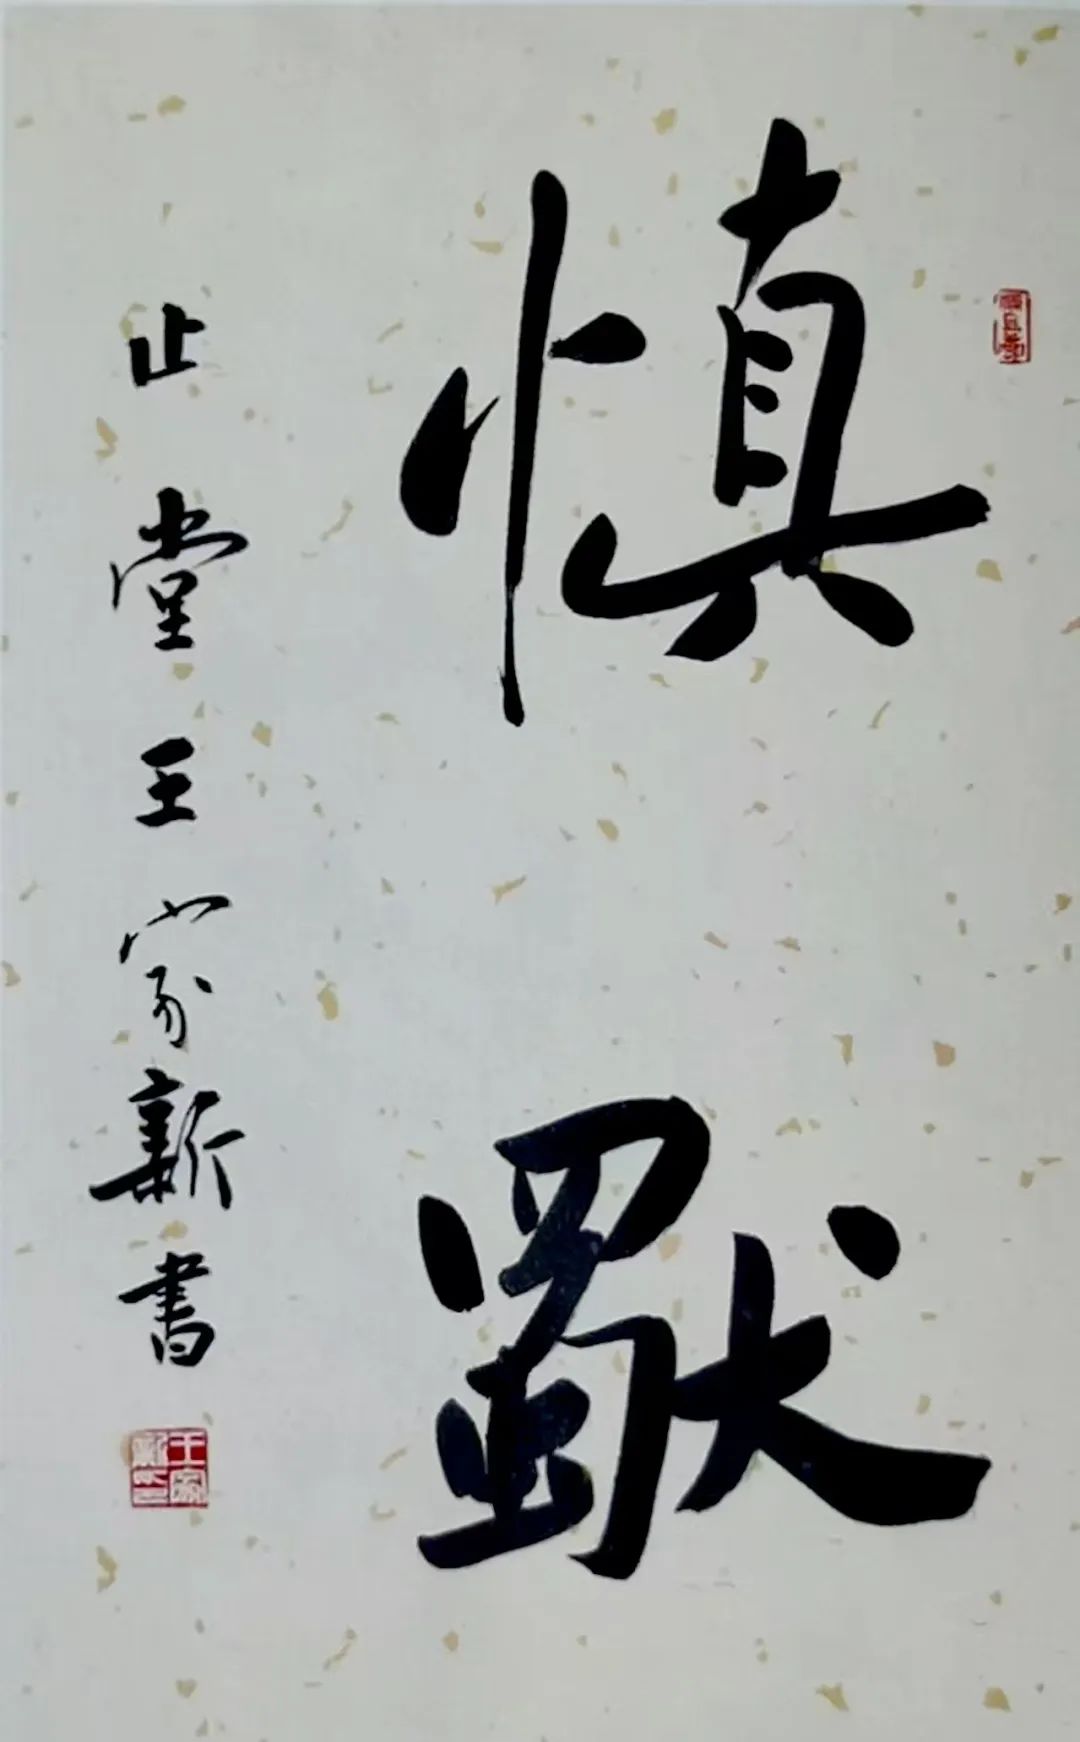 慎獨
止堂王家新書
王家新印